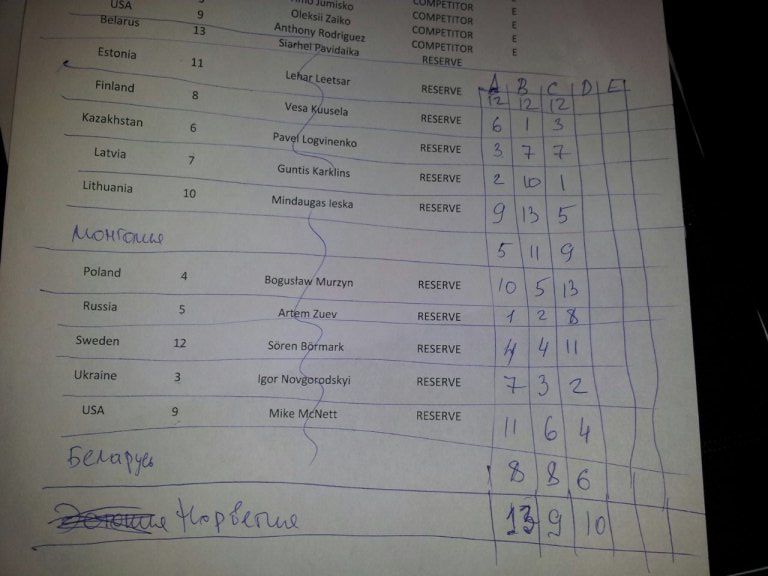 Jumisko COMPETITOR E
USA 9 Oleksii Zaiko COMPETITOR E
Belarus 13 Anthony Rodriguez COMPETITOR E
Siarhei Pavidaika COMPETITOR E
RESERVE
Estonia 11 Lehar Leetsar RESERVE A B C D E
12 12 12
Finland 8 Vesa Kuusela RESERVE 6 1 3
Kazakhstan 6 Pavel Logvinenko RESERVE 3 7 7
Latvia 7 Guntis Karklins RESERVE 2 10 1
Lithuania 10 Mindaugas Ieska RESERVE 9 13 5
Монголия 5 11 9
Poland 4 Bogusław Murzyn RESERVE 10 5 13
Russia 5 Artem Zuev RESERVE 1 2 8
Sweden 12 Sören Börmark RESERVE 4 4 11
Ukraine 3 Igor Novgorodskyi RESERVE 7 3 2
USA 9 Mike McNett RESERVE 11 6 4
Беларусь 8 8 6
Норвегия 13 9 10